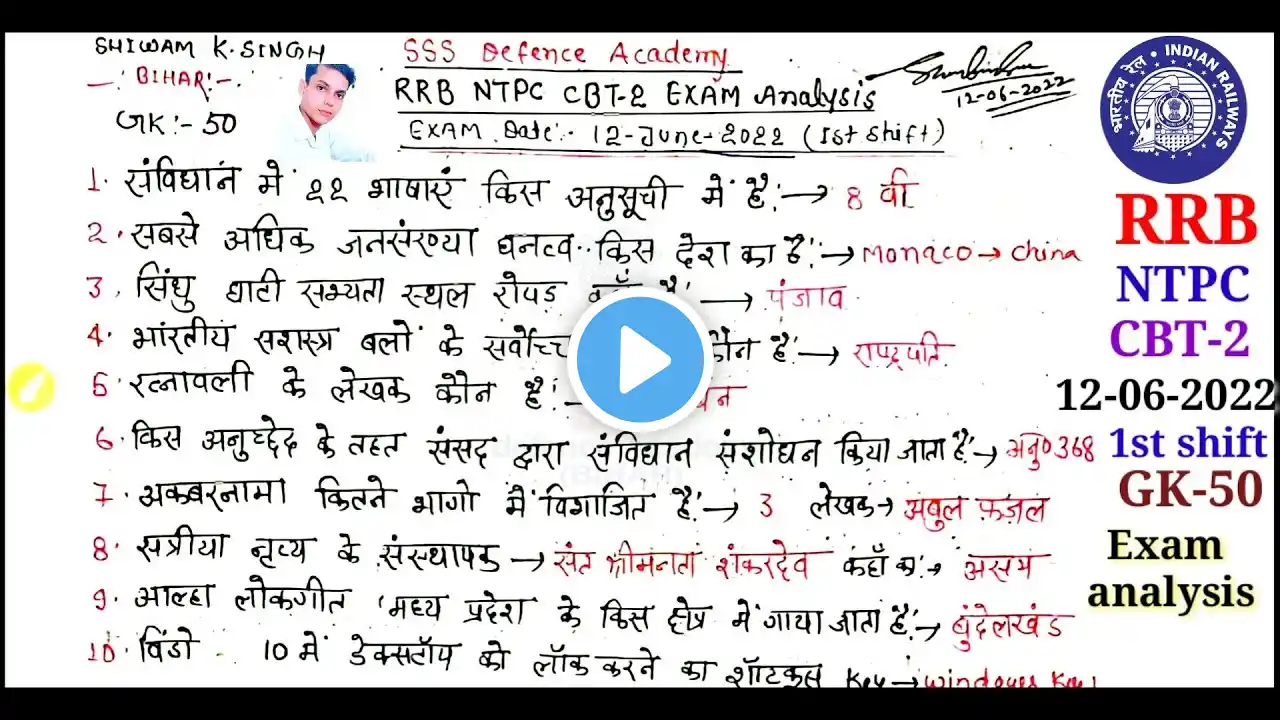 SHIWAM K. SINGH
SSS Defence Academy
-: BIHAR:-
RRB NTPC CBT-2 EXAM Analysis
12-06-2022
GK:- 50
EXAM Date:- 12-June-2022 (1st Shift)
भारतीय रेल • INDIAN RAILWAYS
1. संविधान में 22 भाषाएं किस अनुसूची में है:→ 8 वी
2. सबसे अधिक जनसंख्या घनत्व किस देश का है:→ Monaco → China
3. सिंधु घाटी सभ्यता स्थल रोपड़ → पंजाब
4. भारतीय सशस्त्र बलों के सर्वोच्च कौन है:→ राष्ट्रपति
5. रत्नावली के लेखक कौन है:-
6. किस अनुच्छेद के तहत संसद द्वारा संविधान संशोधन किया जाता है:→ अनु० 368
7. अकबरनामा कितने भागो में विभाजित है:→ 3 लेखक→ अबुल फ़ज़ल
8. सत्रीया नृत्य के संस्थापक → संत श्रीमनता शंकरदेव कहाँ का:→ असम
9. आल्हा लोकगीत मध्य प्रदेश के किस क्षेत्र में गाया जाता है:→ बुंदेलखंड
10. विंडो 10 में डेक्सटॉप को लॉक करने का शॉटकस Key →
RRB
NTPC
CBT-2
12-06-2022
1st shift
GK-50
Exam
analysis